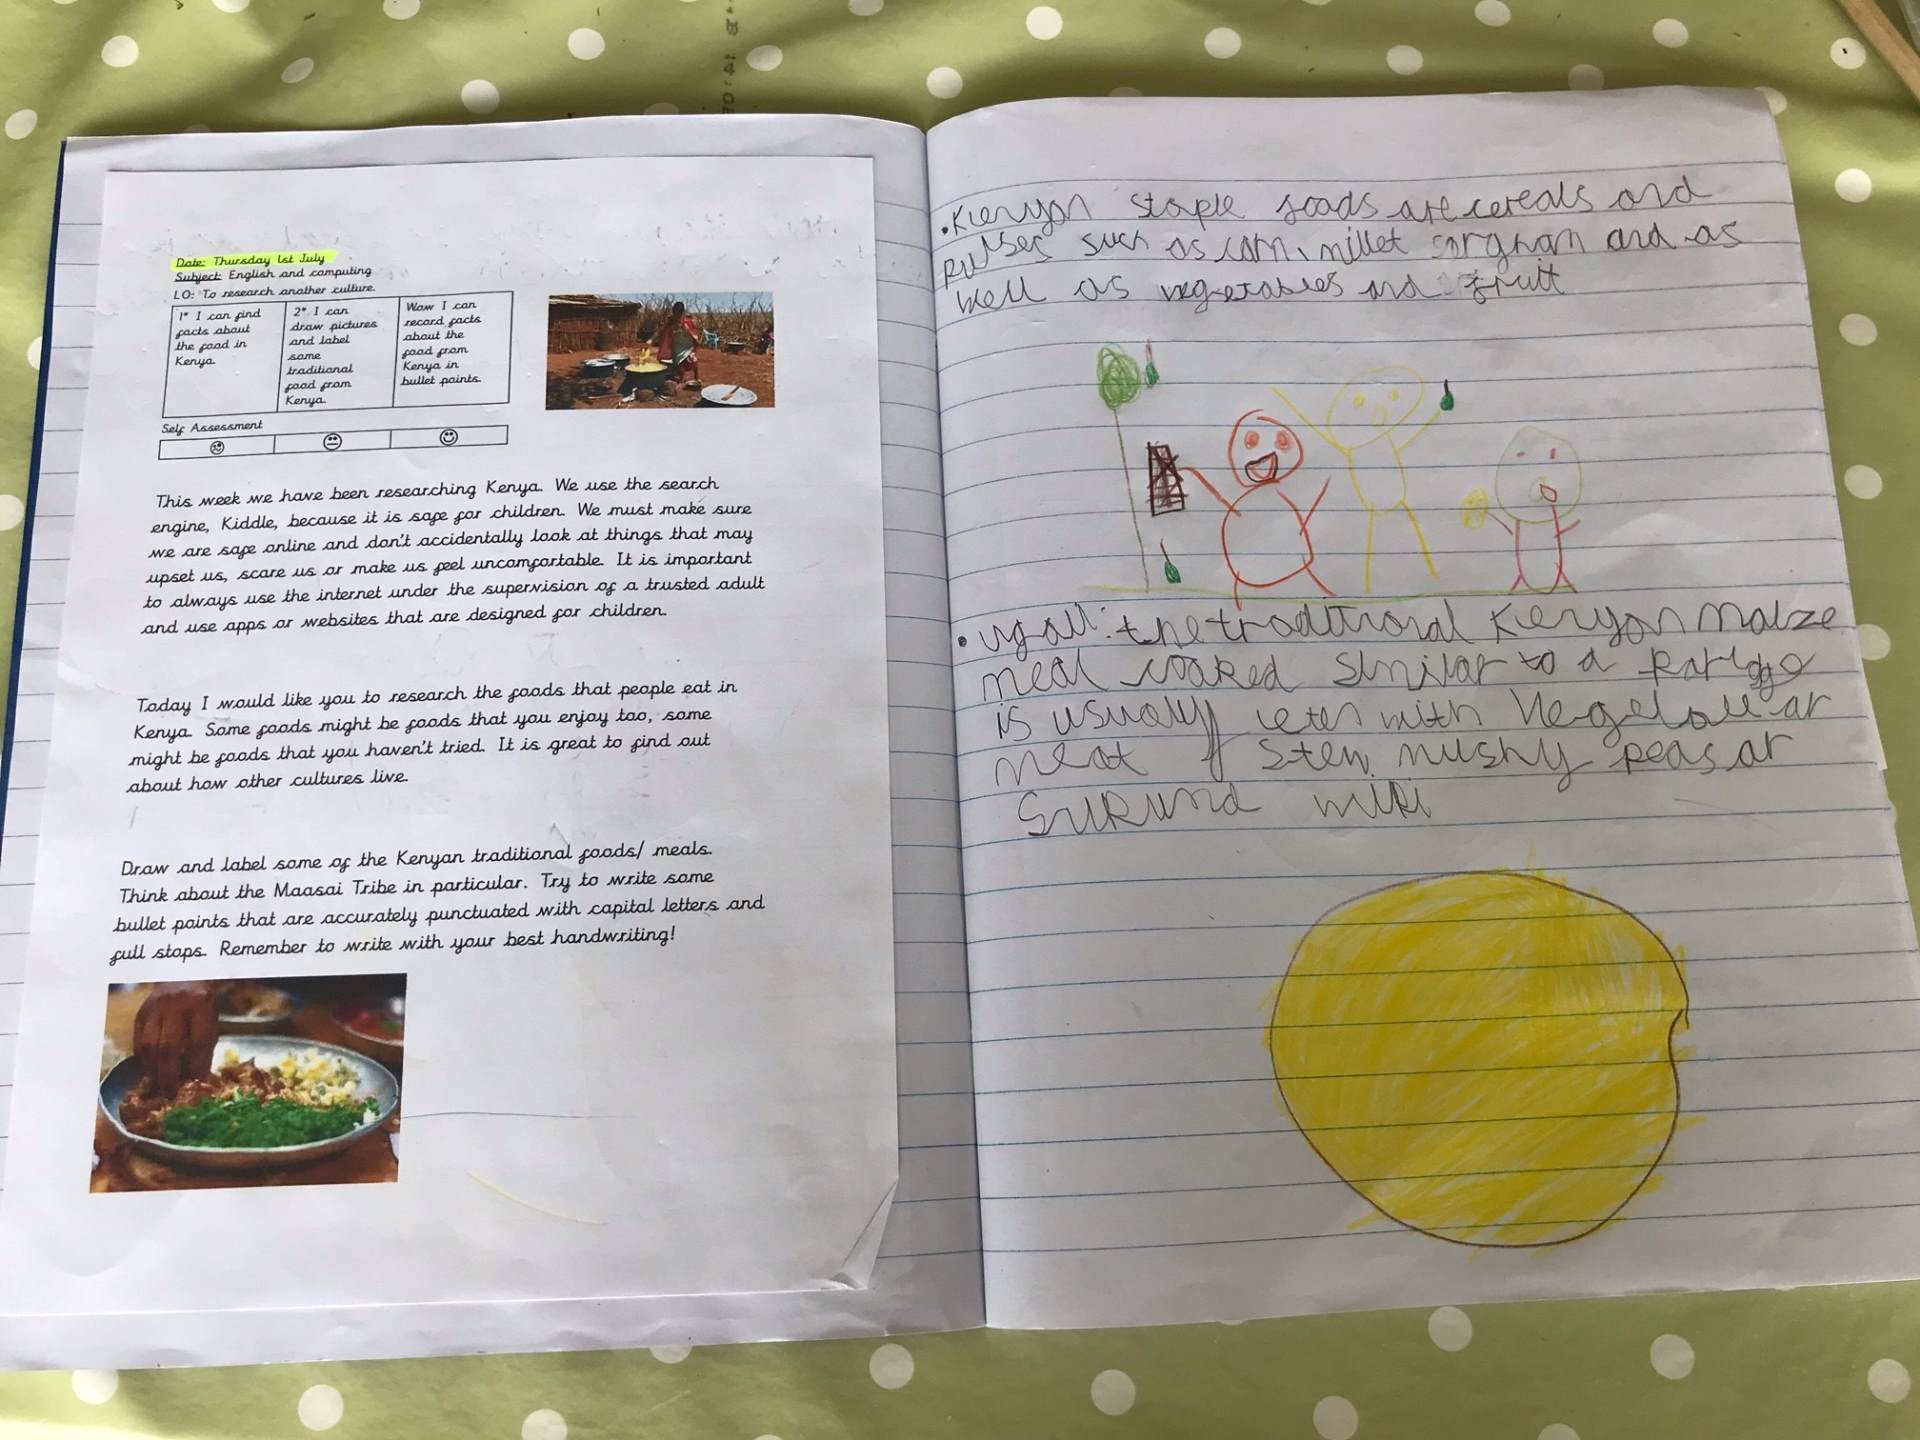 Date: Thursday 1st July
Subject: English and computing
LO: To research another culture.
1* I can find
facts about
the food in
Kenya.
2* I can
draw pictures
and label
some
traditional
food from
Kenya.
Wow I can
record facts
about the
food from
Kenya in
bullet points.
Self Assessment
This week we have been researching Kenya. We use the search
engine, Kiddle, because it is safe for children. We must make sure
we are safe online and don't accidentally look at things that may
upset us, scare us or make us feel uncomfortable. It is important
to always use the internet under the supervision of a trusted adult
and use apps or websites that are designed for children.
Today I would like you to research the foods that people eat in
Kenya. Some foods might be foods that you enjoy too, some
might be foods that you haven't tried. It is great to find out
about how other cultures live.
Draw and label some of the Kenyan traditional foods/ meals.
Think about the Maasai Tribe in particular. Try to write some
bullet points that are accurately punctuated with capital letters and
full stops. Remember to write with your best handwriting!
• Kenyan staple foods are cereals and
pulses such as corn, millet sorgham and as
well as vegetables and fruit
• ugali: the traditional Kenyan Maize
meal cooked similar to a
is usually with or
meat stew, mushy peas or
Sukuma wiki